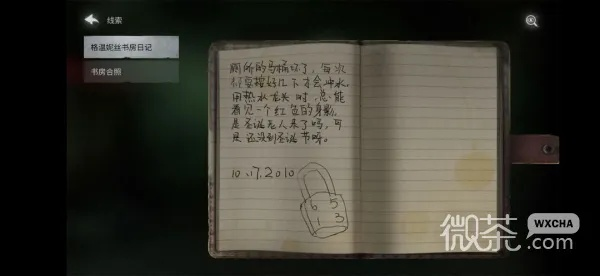 线索
格温妮丝书房日记
书房合照
厕所的马桶坏了，每次
都要按好几下才会冲水。
用热水龙头时，总能
看见一个红色的身影。
是圣诞老人来了吗，可
是还没到圣诞节呀。
10.17.2010
6 5
1 3
微茶
WXCHA
.com